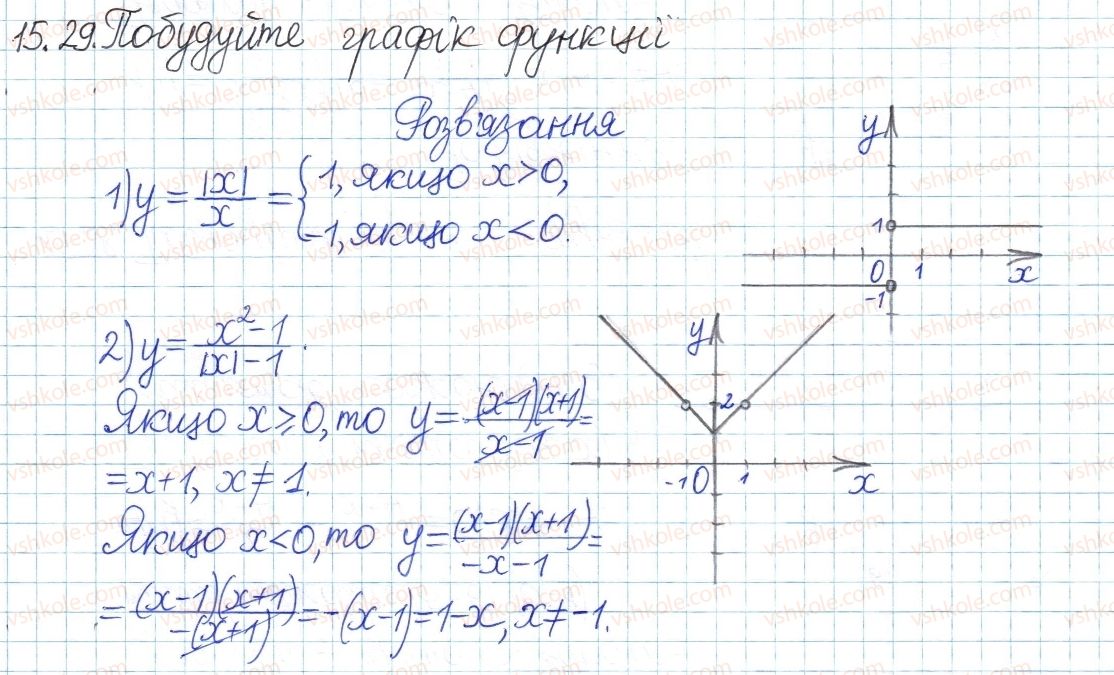 15.29. Побудуйте графік функції
Розв'язання
1) y = |x|/x = { 1, якщо x > 0,
-1, якщо x < 0.
y
1
0 1 x
-1
2) y = x² - 1 / |x| - 1.
Якщо x ≥ 0, то y = (x-1)(x+1) / x-1 =
= x+1, x ≠ 1.
Якщо x < 0, то y = (x-1)(x+1) / -x-1 =
= (x-1)(x+1) / -(x+1) = -(x-1) = 1-x, x ≠ -1.
y
2
-1 0 1 x
vshkole.com